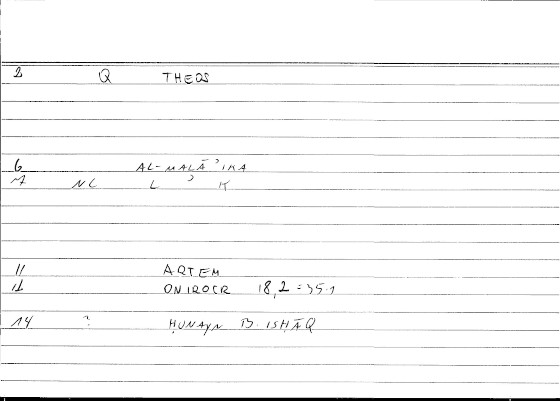 2 Q THEOS
6 AL-MALĀʾIKA
7 NC L ʾ K
11 ARTEM
12 ONIROCR 18,2 = 35.1
14 ? ḤUNAYN B. ISḤĀQ